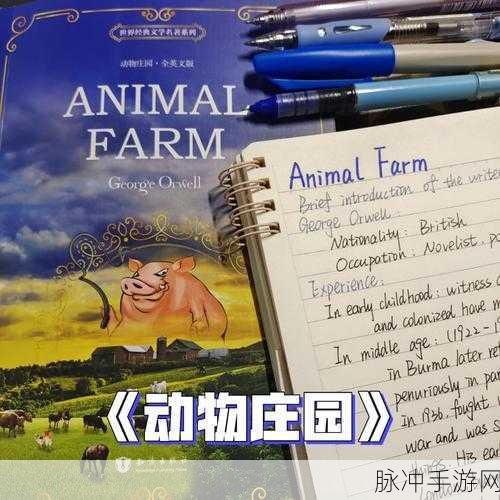 世界经典文学名著系列
动物庄园·全英文版
ANIMAL
FARM
George Orwell
Animal Farm
Brief introduction of the writer
George Orwell:
Nationality: British
Occupation: Novelist.
Experience:
In early childhood: witness
and colonized have
In middle age: (1922-1
in Burma later
penuriously in
In 1936. fought
war and was
His
《动物庄园》
脉冲手游网